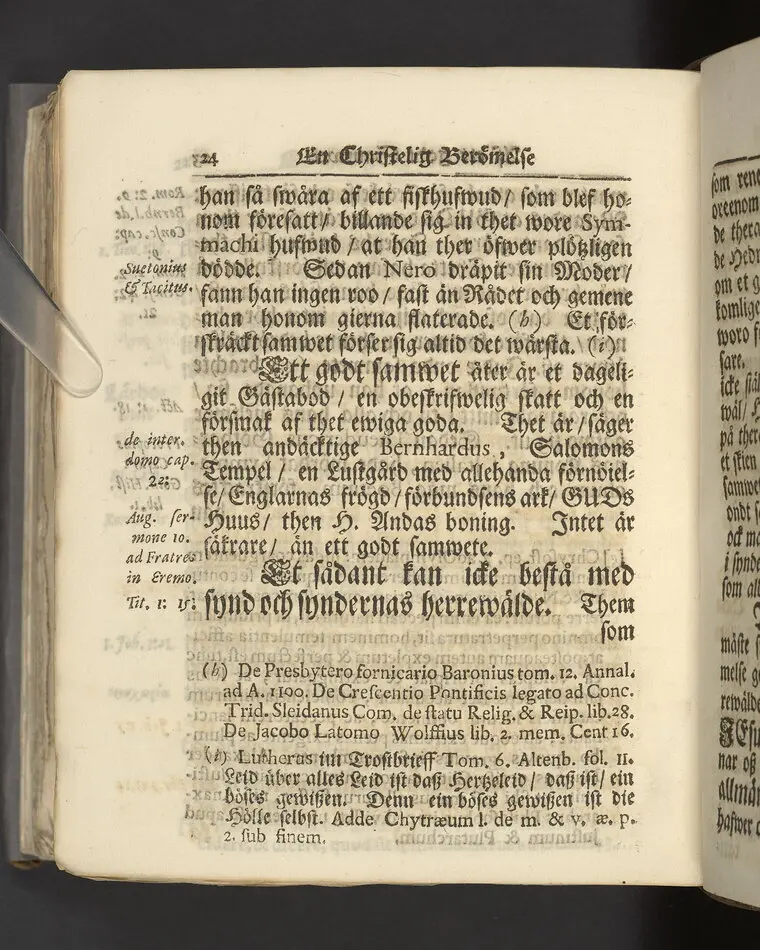 24 En Christelig Berömelse
han så swåra af ett fiskhufwud/ som blef ho-
nom föresatt/ billande sig in thet wore Sym-
machi hufwud/ at han ther öfwer plötzligen
dödde. Sedan Nero dräpit sin Moder/
fann han ingen roo/ fast än Rådet och gemene
man honom gierna flaterade. (h) Et för-
skräckt samwet förser sig altid det wärsta. (i)
Suetonius
& Tacitus.
Ett godt samwet åter är et dageli-
git Gästabod/ en obeskrifwelig skatt och en
försmak af thet ewiga goda. Thet är/ säger
then andächtige Bernhardus, Salomons
Tempel/ en Lustgård med allehanda förnöiel-
se/ Englarnas frögd/ förbundsens ark/ GUDs
Huus/ then H. Andas boning. Intet är
säkrare/ än ett godt samwete.
de inter.
domo cap.
22:
Aug. ser-
mone 10.
ad Fratres
in Eremo.
Et sådant kan icke bestå med
synd och syndernas herrewälde. Them
som
Tit. 1: 15:
(h) De Presbytero fornicario Baronius tom. 12. Annal.
ad A. 1100. De Crescentio Pontificis legato ad Conc.
Trid. Sleidanus Com. de statu Relig. & Reip. lib. 28.
De Jacobo Latomo Wolffius lib. 2. mem. Cent 16.
(i) Lutherus im Trostbrieff Tom. 6. Altenb. fol. 11.
Leid über alles Leid ist daß Hertzeleid/ daß ist/ ein
böses gewißen. Denn ein böses gewißen ist die
Hölle selbst. Adde Chytræum l. de m. & v. æ. p.
2. sub finem.
som rene
de thera
om et g
komlige
woro f
sare.
icke
på ther
et
samwe
ondt s
och ma
i synde
som al
måste s
melse g
rewälde
JEsu
nar oß
allmän
hafwer